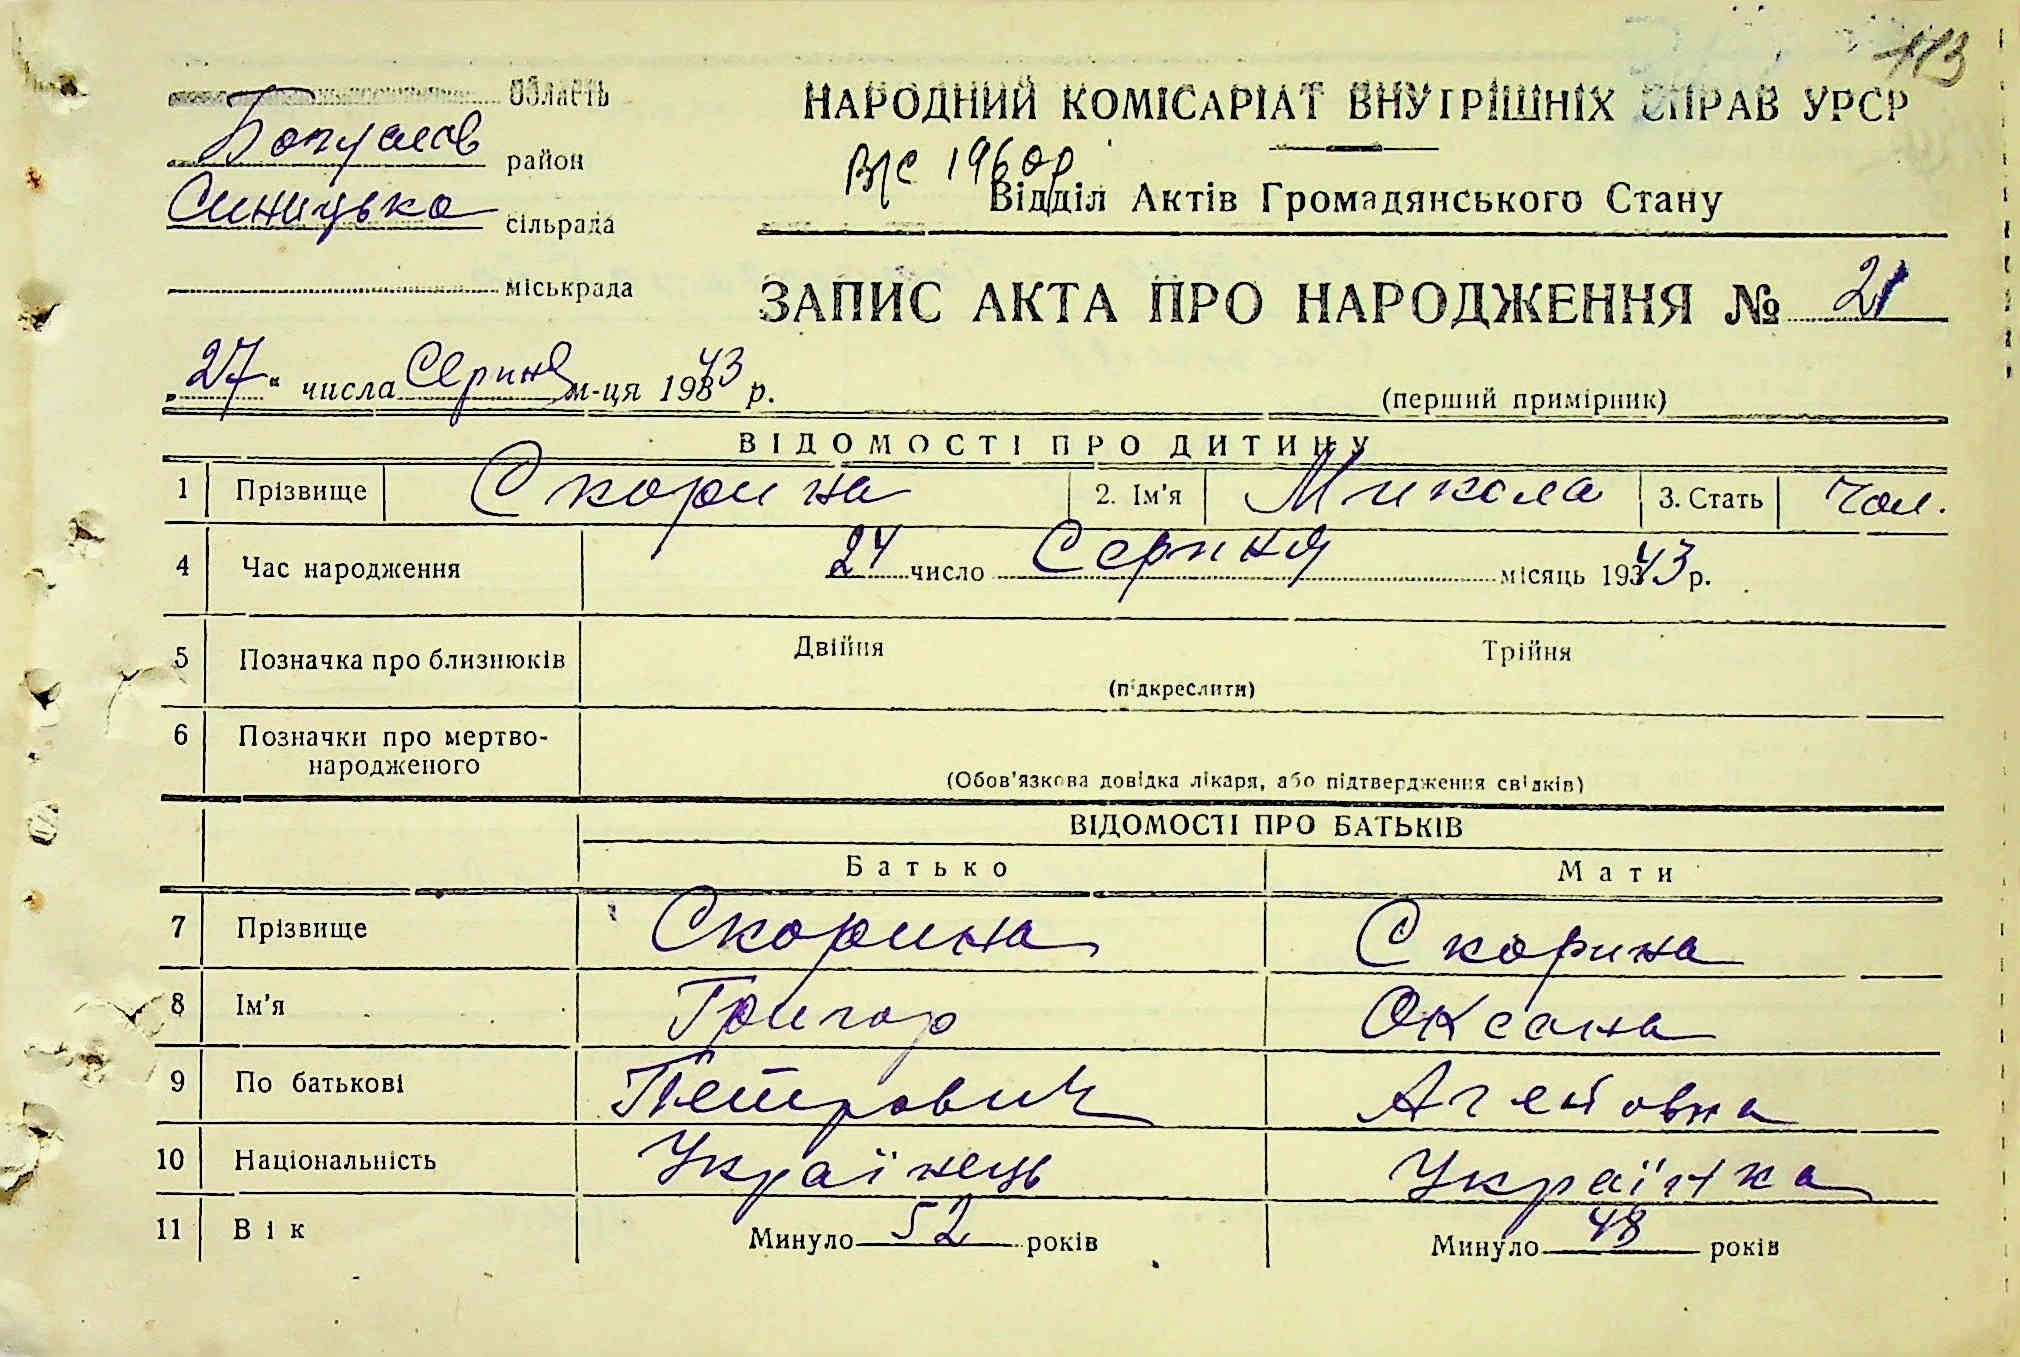 113
область
НАРОДНИЙ КОМІСАРІАТ ВНУТРІШНІХ СПРАВ УРСР
Богуслав район
в/с 1960р
Синицька сільрада
Відділ Актів Громадянського Стану
міськрада
ЗАПИС АКТА ПРО НАРОДЖЕННЯ № 21
„27“ числа Серпня м-ця 1943 р.
(перший примірник)
ВІДОМОСТІ ПРО ДИТИНУ
1 Прізвище Скорина 2. Ім'я Микола 3. Стать Чол.
4 Час народження 24 число Серпня місяць 1943 р.
5 Позначка про близнюків Двійня Трійня
(підкреслити)
6 Позначки про мертво-
народженого
(Обов'язкова довідка лікаря, або підтвердження свідків)
ВІДОМОСТІ ПРО БАТЬКІВ
Батько Мати
7 Прізвище Скорина Скорина
8 Ім'я Григор Оксана
9 По батькові Петрович Агейовна
10 Національність Українець Українка
11 Вік Минуло 52 років Минуло 48 років